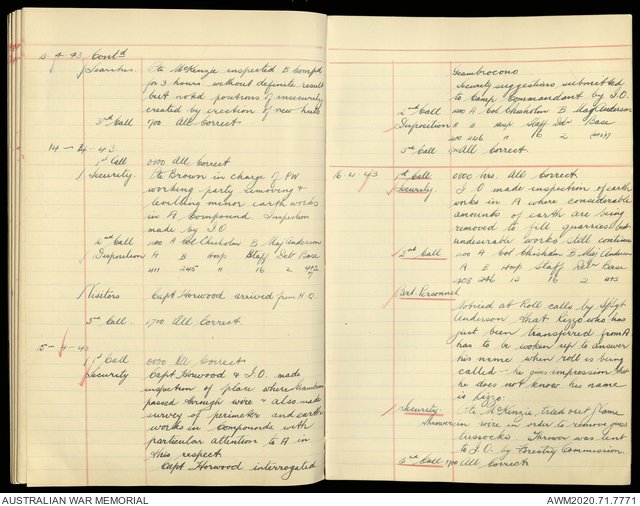 13. 4. 43. Contd
Searches. Pte McKenzie inspected B Compd
for 3 hours without definite result
but noted positions of insecurity
created by erection of new huts
3rd Call 1700 All Correct.
14 - 4 - 43.
1st Call 0800 All Correct
Security. Pte Brown in charge of PW
working party removing &
levelling minor earth works
in A Compound. Inspection
made by I.O.
2nd Call 1200 A Col Chisholm B Maj Anderson
Disposition A B Hosp Staff Det Base
411 245 11 16 2
Visitors Capt Horwood arrived from H.Q.
3rd Call. 1700 All Correct.
15 - 4 - 43
1st Call 0800 All Correct.
Security Capt Horwood & I.O. made
inspection of place where
passed through wire & also made
survey of perimeter and earth
works in Compounds with
particular attention to A in
this respect.
Capt Horwood interrogated
Giambrocono
Security suggestions submitted
to Camp Commandant by I.O.
2nd Call 1200 A Col Chisholm B Maj Anderson
Disposition A B Hosp Staff Det Base
410 246 11 16 2
3rd Call 1700 All Correct.
16. 4. 43 1st Call 0800 hrs. All Correct.
Security. I.O made inspection of earth
works in A where considerable
amounts of earth are being
removed to fill quarries but
undesirable works still continue
2nd Call 1200 A Col Chisholm B Maj Anderson
A B Hosp Staff Det Base
408 246 13 16 2 493
Part. Personnel
Noticed at Roll calls by S/Sgt
Anderson that Rizzo who has
just been transferred from A
has to be woken up to answer
his name when roll is being
called - he gives impression that
he does not know his name
is Rizzo.
Security. Pte McKenzie tried out Flame
thrower in wire in order to remove grass
tussocks. Thrower was lent
to I.O. by Forestry Commission.
3rd Call 1700 All Correct.
AUSTRALIAN WAR MEMORIAL
AWM2020.71.7771